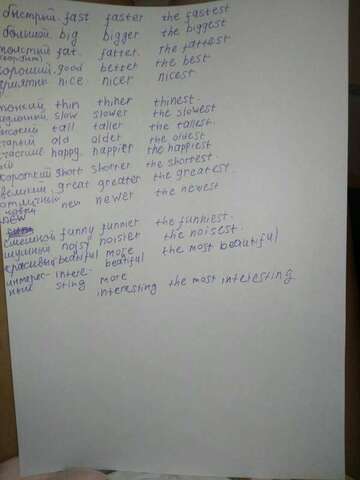 быстрый fast faster the fastest
большой big bigger the biggest
толстый fat fatter the fattest
хороший good better the best
приятный nice nicer nicest
тонкий thin thiner thinest
slow slower the slowest
высокий tall taller the tallest
старый old older the oldest
happy happier the happiest
короткий short shorter the shortest
великий, great greater the greatest
отличный
новый new newer the newest
new
смешной funny funnier the funniest
шумный noisy noisier the noisest
красивый beatiful more the most beautiful
beatiful
интерес- intere- more
ный sting interesting the most interesting